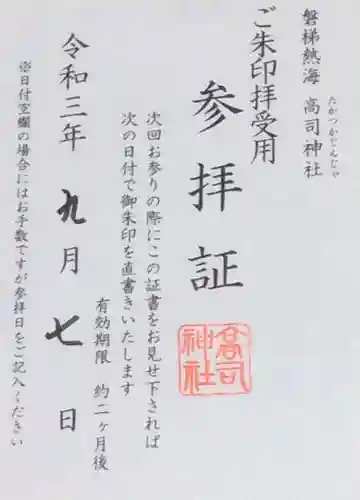 磐梯熱海 高司神社
たかつかじんじゃ
ご朱印拝受用
参拝証
次回お参りの際にこの証書をお見せ下されば
次の日付で御朱印を直書きいたします
有効期限 約二ヶ月後
令和三年 九月 七日
※日付空欄の場合にはお手数ですが参拝日をご記入ください
高司
神社